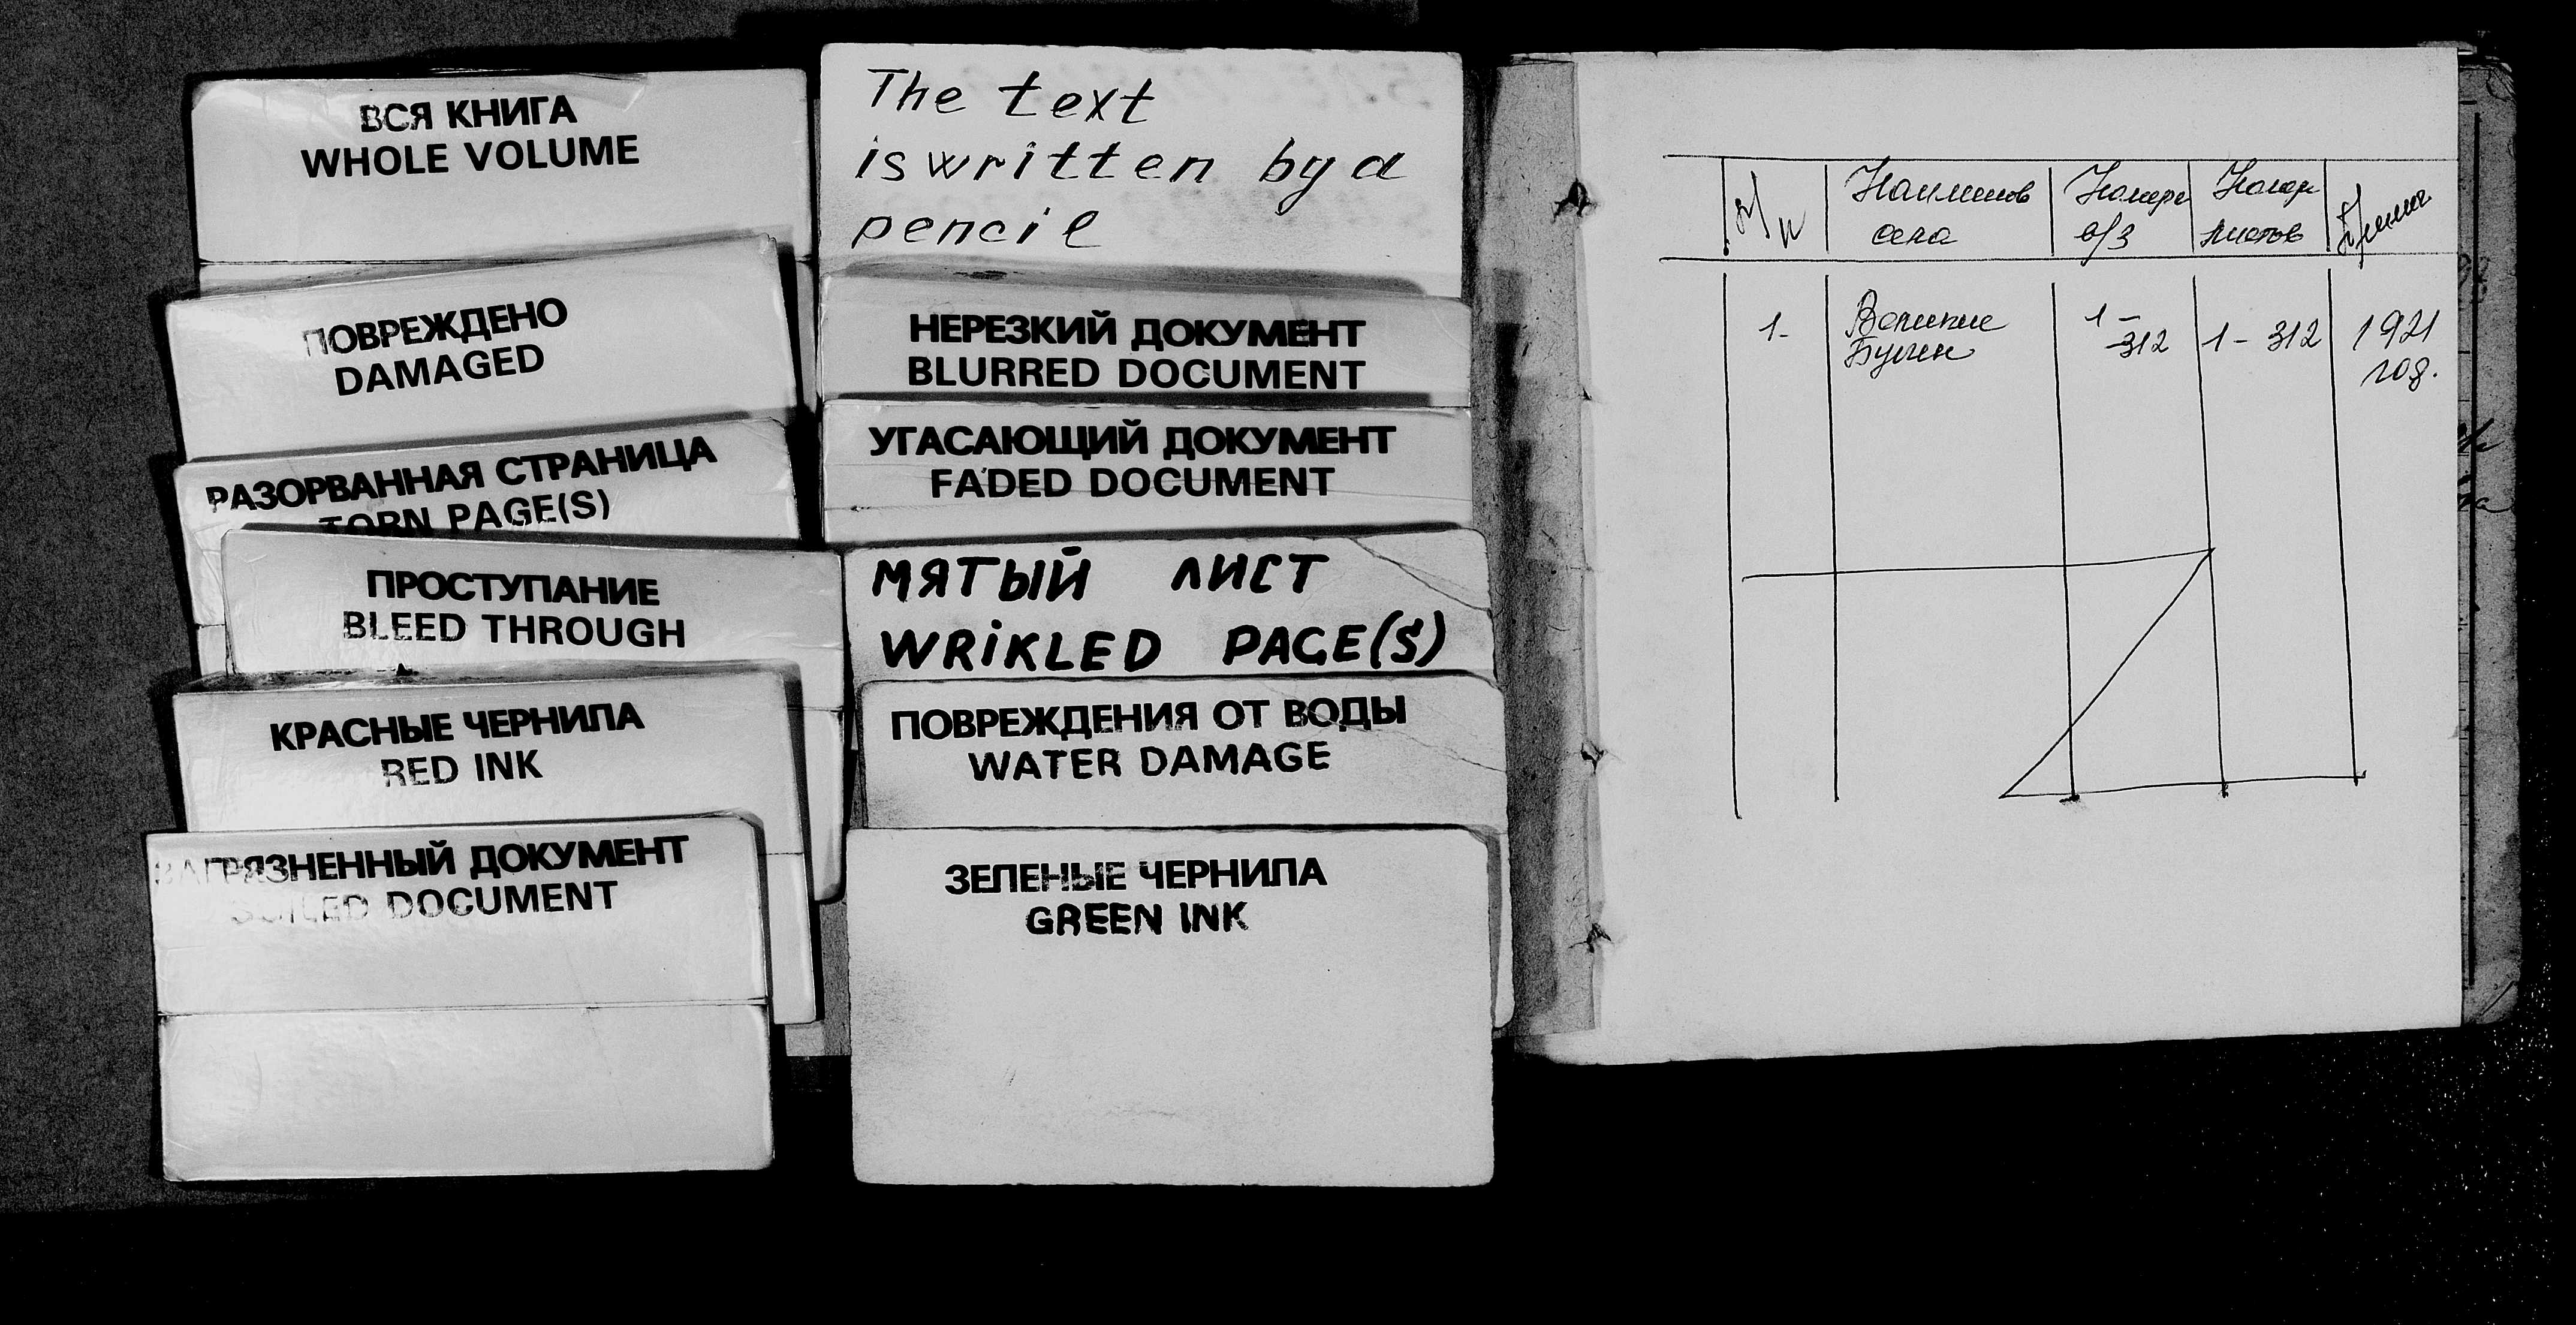 ВСЯ КНИГА
WHOLE VOLUME
ПОВРЕЖДЕНО
DAMAGED
РАЗОРВАННАЯ СТРАНИЦА
TORN PAGE(S)
ПРОСТУПАНИЕ
BLEED THROUGH
КРАСНЫЕ ЧЕРНИЛА
RED INK
ЗАГРЯЗНЕННЫЙ ДОКУМЕНТ
SOILED DOCUMENT
The text
is written by a
pencil
НЕРЕЗКИЙ ДОКУМЕНТ
BLURRED DOCUMENT
УГАСАЮЩИЙ ДОКУМЕНТ
FADED DOCUMENT
МЯТЫЙ ЛИСТ
WRIKLED PAGE(S)
ПОВРЕЖДЕНИЯ ОТ ВОДЫ
WATER DAMAGE
ЗЕЛЕНЫЕ ЧЕРНИЛА
GREEN INK
Наименов Номера Номер
села в/з листов
1- Великие 1- 1 - 312 1921
-312 год.